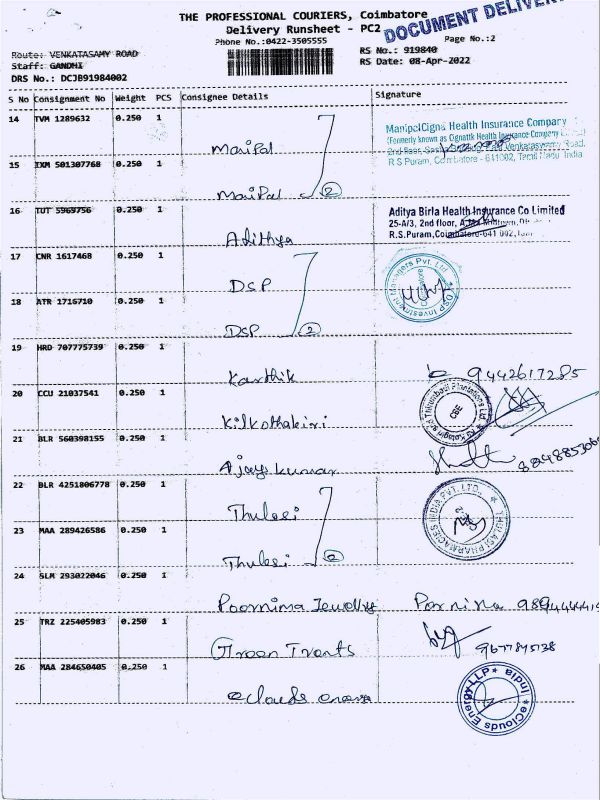 THE PROFESSIONAL COURIERS, Coimbatore
DOCUMENT DELIVER
Delivery Runsheet - PC2
Phone No.:0422-3505555
Page No.:2
Route: VENKATASAMY ROAD
RS No.: 919840
Staff: GANDHI
RS Date: 08-Apr-2022
DRS No.: DCJB91984002
S No Consignment No Weight PCS Consignee Details Signature
14 TVM 1289632 0.250 1
Manipal
ManipalCigna Health Insurance Company
(Formerly known as Cignattk Health Insurance Company
R.S.Puram, Coimbatore - 641002, Tamil Nadu India
15 IXM 501307768 0.250 1
Manipal 2
16 TUT 5969756 0.250 1
Adithya
Aditya Birla Health Insurance Co Limited
25-A/3, 2nd floor,
R.S.Puram, Coimbatore-641 002,
17 CNR 1617468 0.250 1
DSP
DSP Investment Managers Pvt. Ltd.
18 ATR 1716710 0.250 1
DSP 2
19 HRD 707775739 0.250 1
Karthik
9442617285
20 CCU 21037541 0.250 1
Kilkothakiri
Kil Kotagiri and Thirumbadi Plantations Ltd
CBE
21 BLR 560398155 0.250 1
Ajay kumar
22 BLR 4251806778 0.250 1
Thulasi
THULASI PHARMACIES INDIA PVT. LTD.
23 MAA 289426586 0.250 1
Thulasi 2
24 SLM 293022046 0.250 1
Poornima Jewellry
25 TRZ 225405983 0.250 1
Green Trants
26 MAA 284650405 0.250 1
eclouds energy
eClouds Energy LLP * India